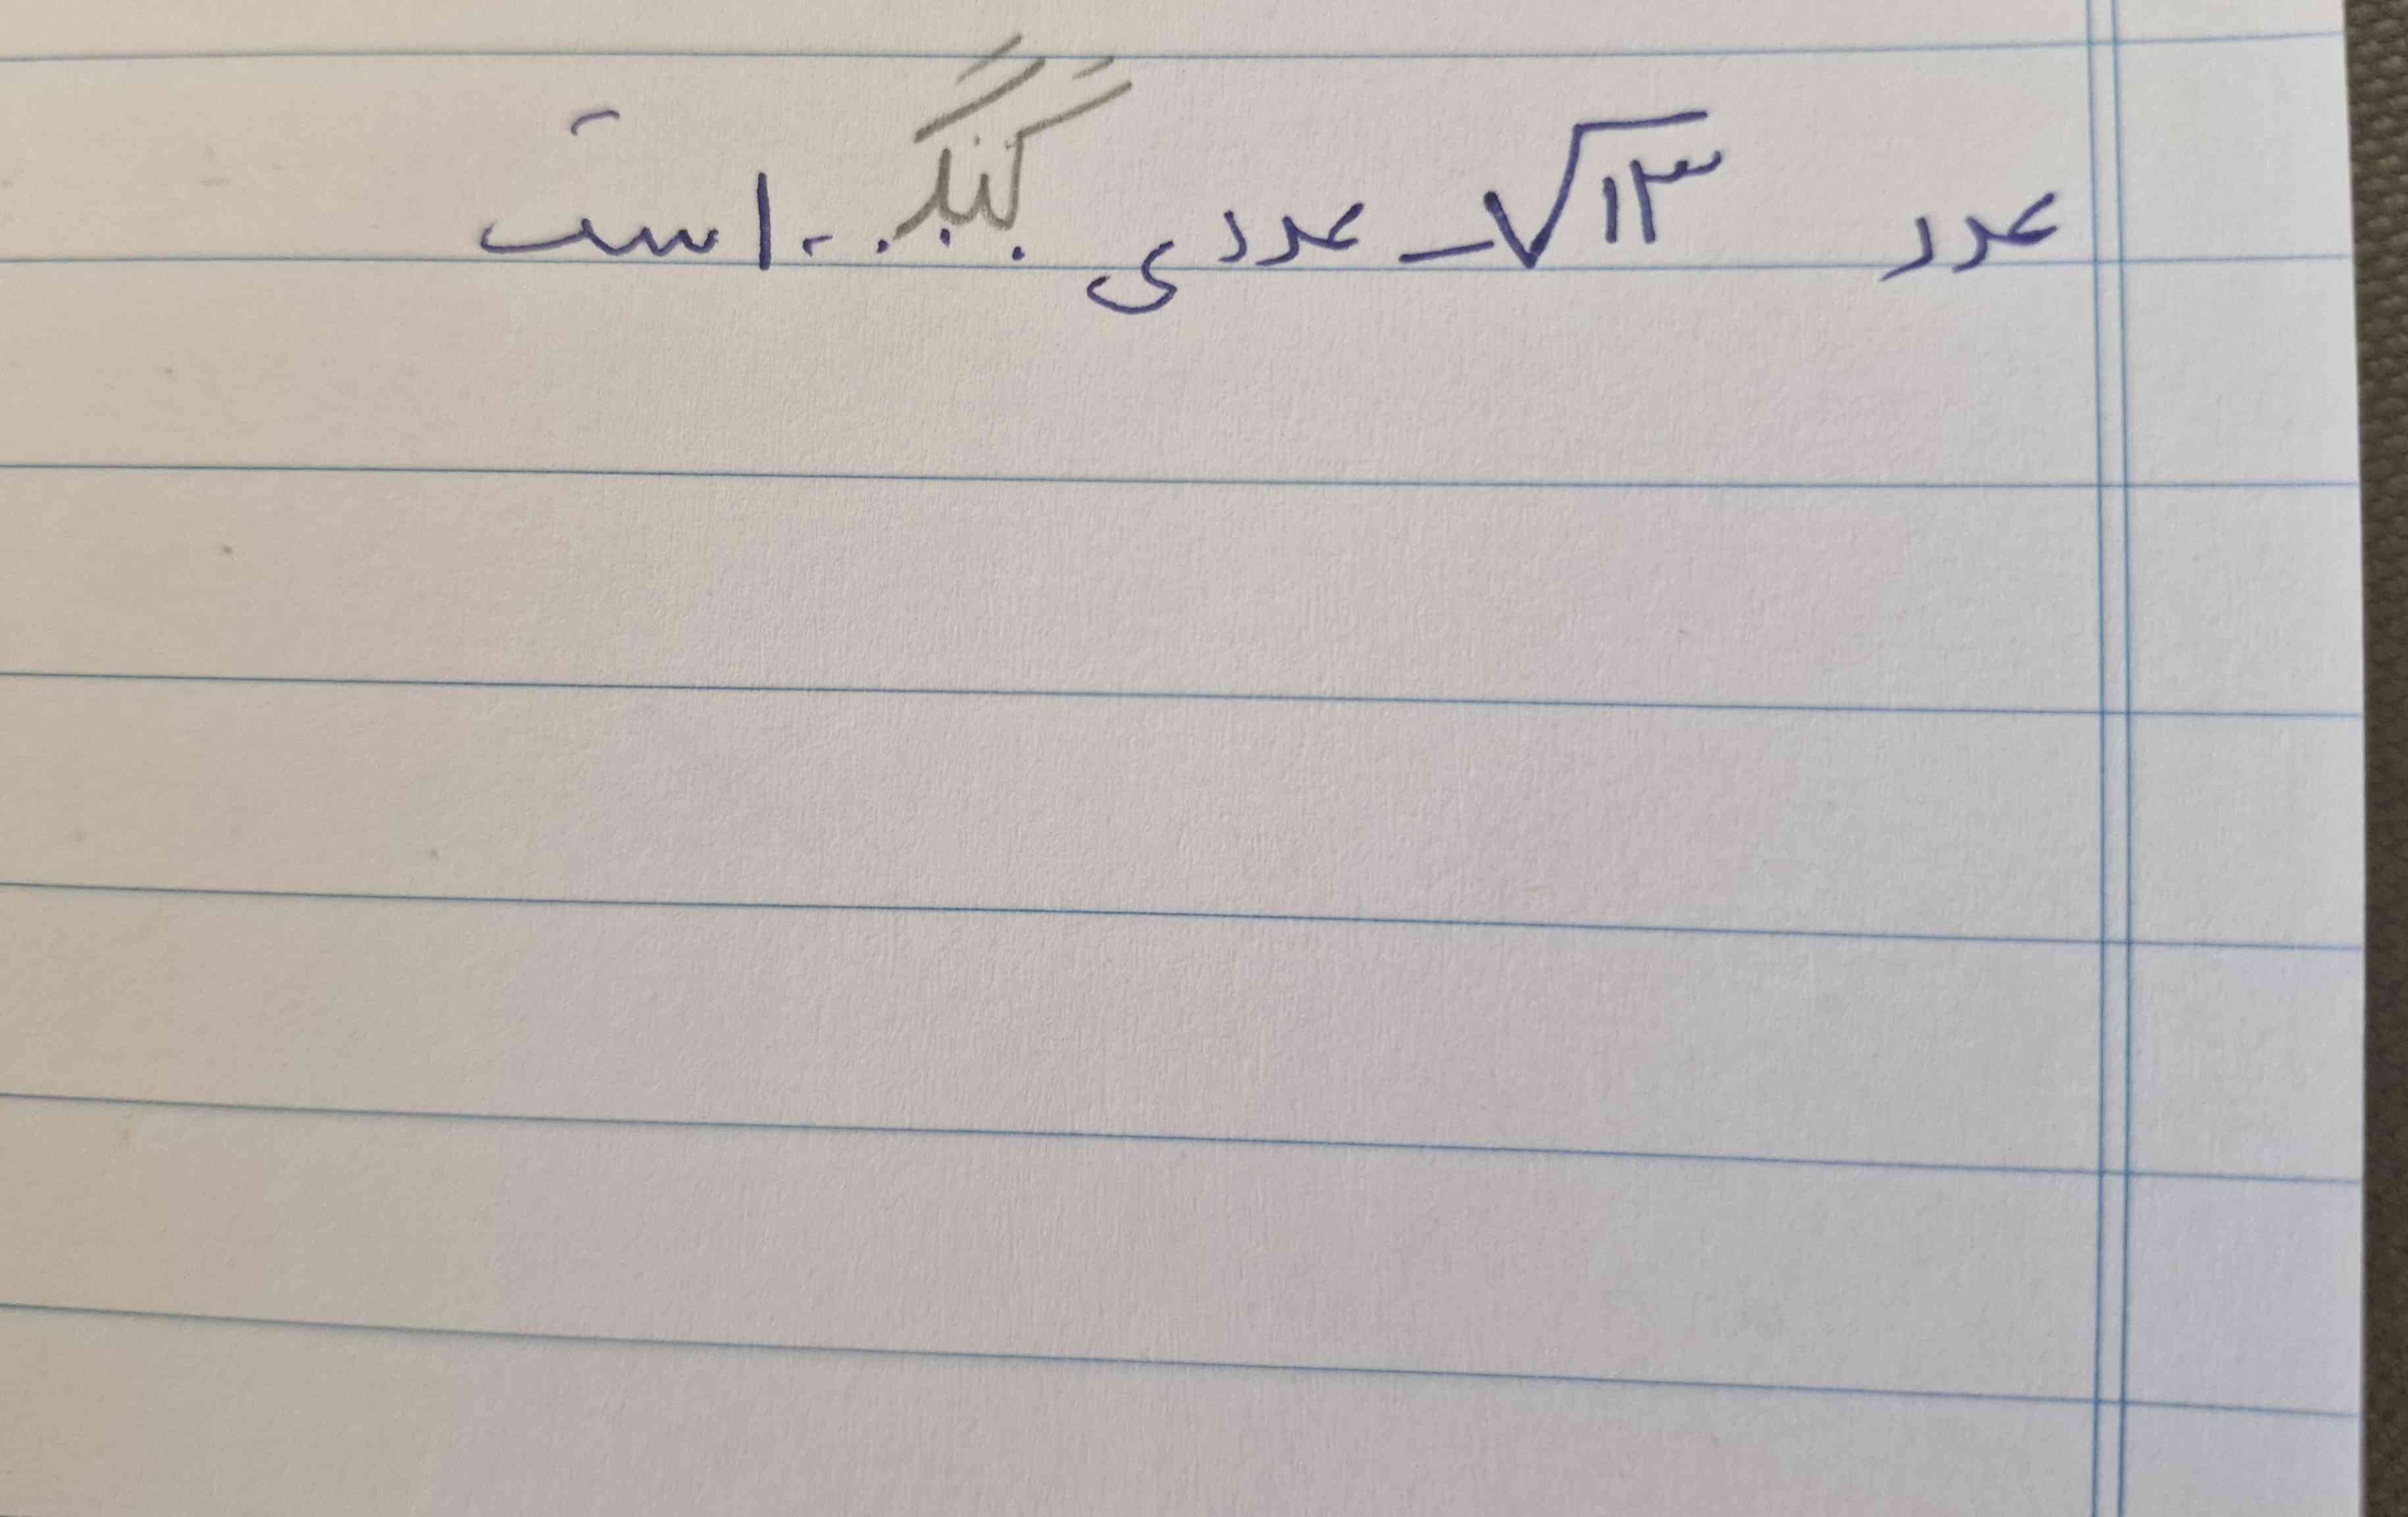 عدد -√۱۳ عددی گنگ..... است